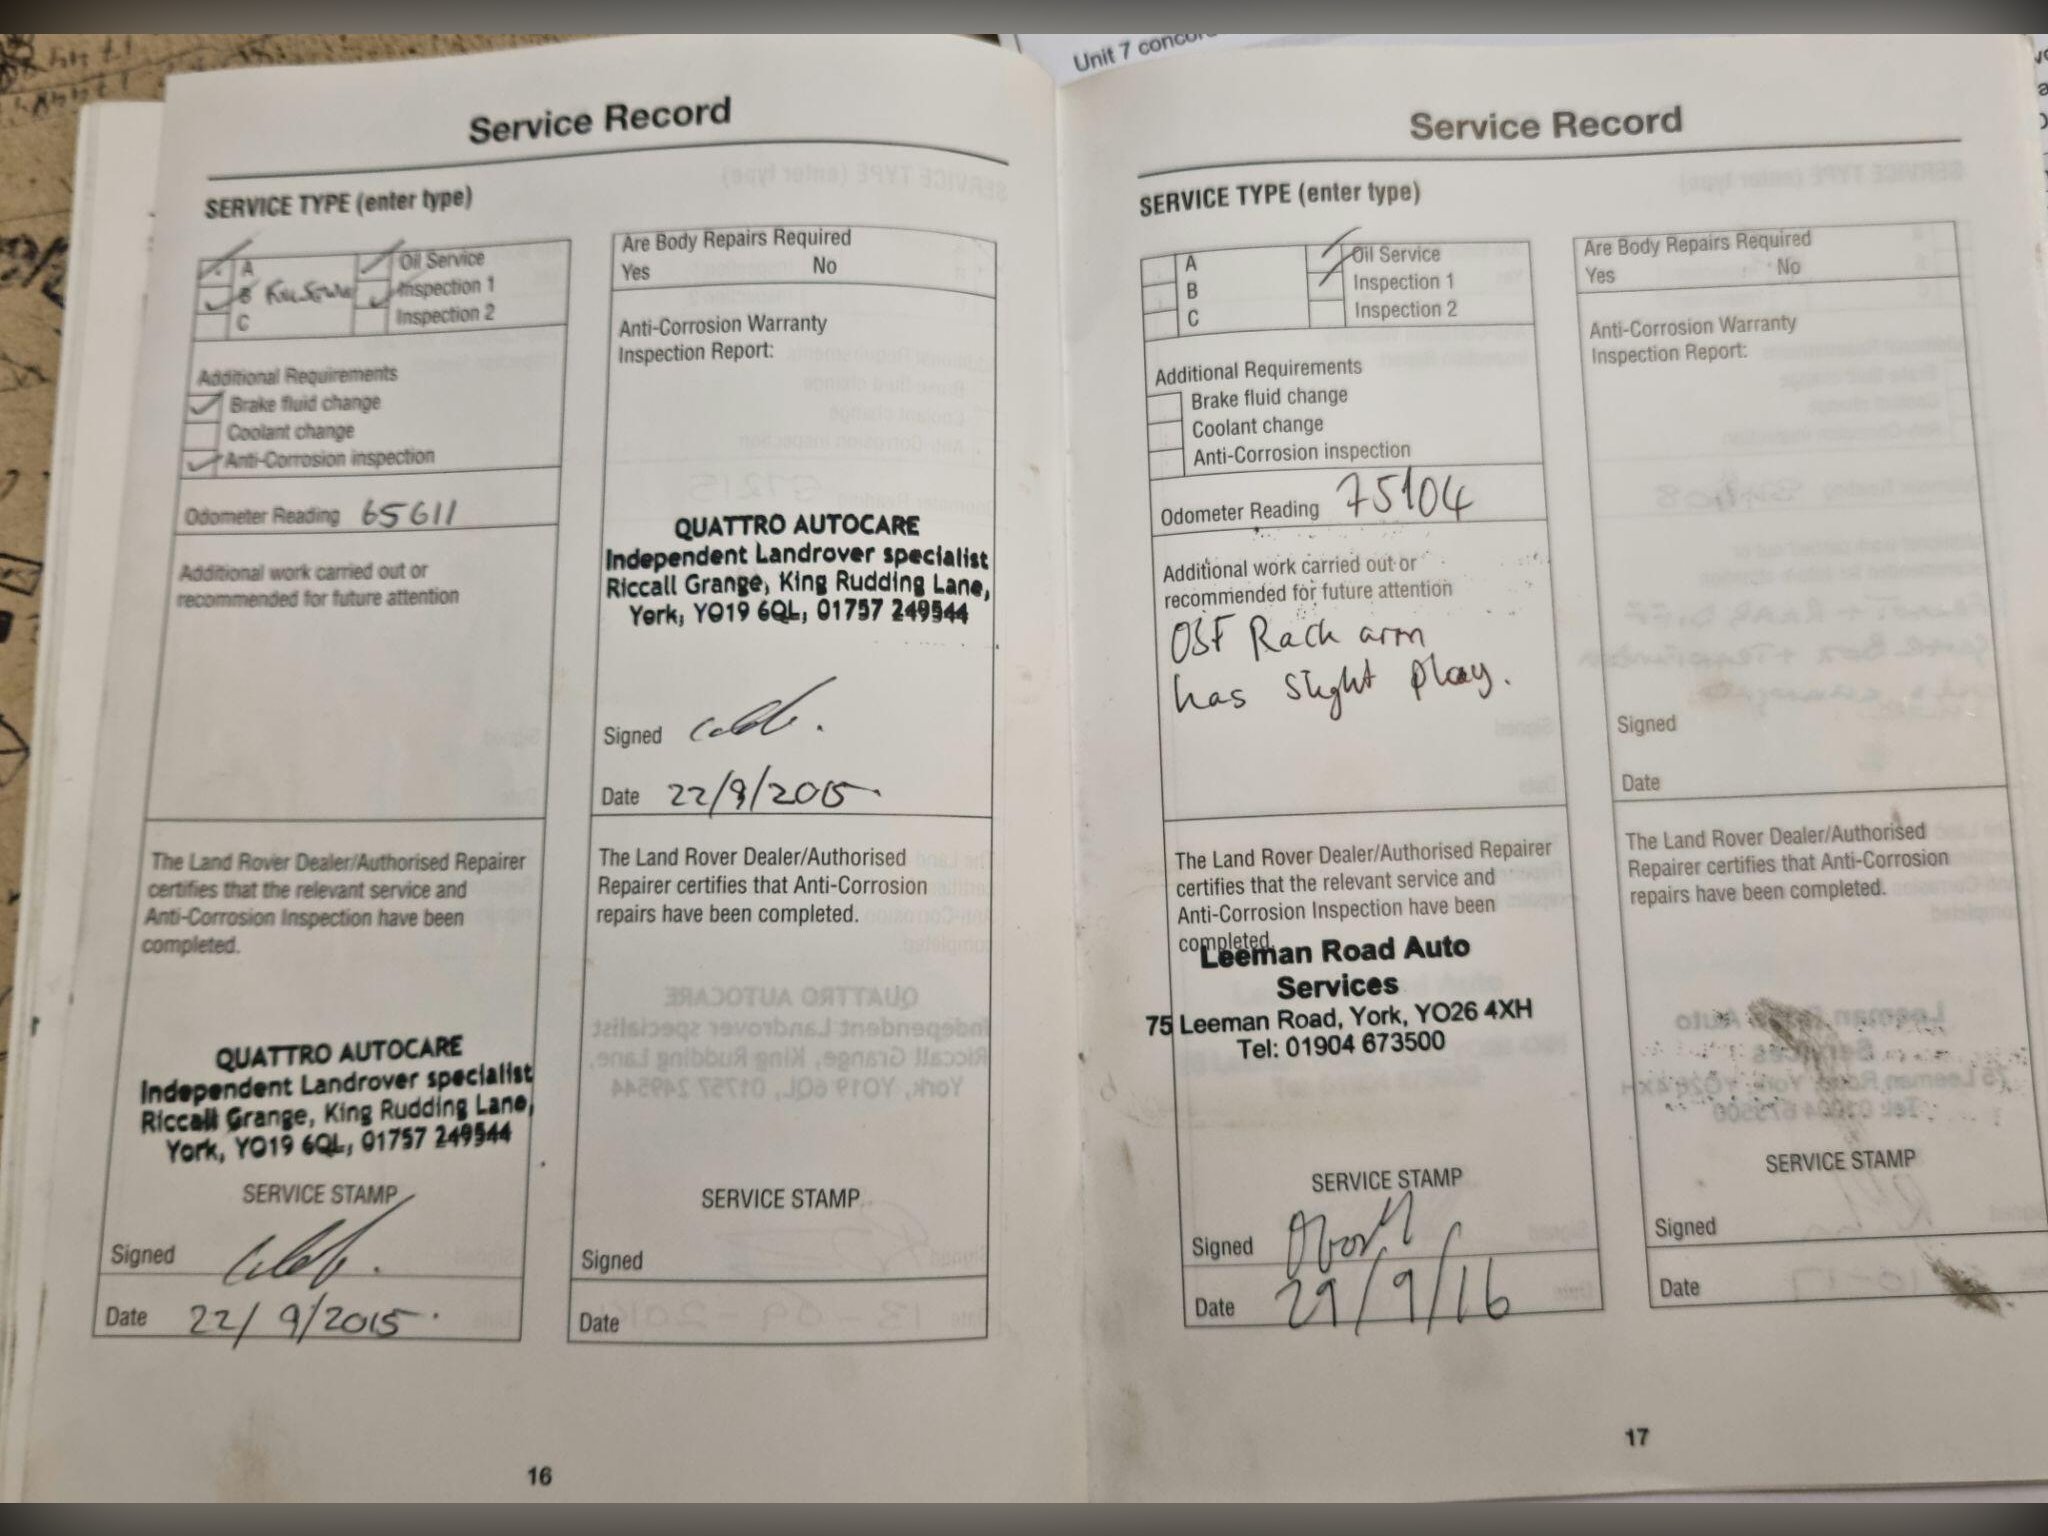 Unit 7 concor
Service Record
SERVICE TYPE (enter type)
A
B Full Service
C
Oil Service
Inspection 1
Inspection 2
Additional Requirements
Brake fluid change
Coolant change
Anti-Corrosion inspection
Odometer Reading 65611
Additional work carried out or
recommended for future attention
The Land Rover Dealer/Authorised Repairer
certifies that the relevant service and
Anti-Corrosion Inspection have been
completed.
QUATTRO AUTOCARE
Independent Landrover specialist
Riccall Grange, King Rudding Lane,
York, YO19 6QL, 01757 249544
SERVICE STAMP
Signed
Date 22/9/2015.
Are Body Repairs Required
Yes No
Anti-Corrosion Warranty
Inspection Report:
QUATTRO AUTOCARE
Independent Landrover specialist
Riccall Grange, King Rudding Lane,
York, YO19 6QL, 01757 249544
Signed
Date 22/9/2015.
The Land Rover Dealer/Authorised
Repairer certifies that Anti-Corrosion
repairs have been completed.
SERVICE STAMP
Signed
Date
16
Service Record
SERVICE TYPE (enter type)
A
B
C
Oil Service
Inspection 1
Inspection 2
Additional Requirements
Brake fluid change
Coolant change
Anti-Corrosion inspection
Odometer Reading 75104
Additional work carried out or
recommended for future attention
OSF Rack arm
has slight play.
The Land Rover Dealer/Authorised Repairer
certifies that the relevant service and
Anti-Corrosion Inspection have been
completed.
Leeman Road Auto
Services
75 Leeman Road, York, YO26 4XH
Tel: 01904 673500
SERVICE STAMP
Signed
Date 29/9/16
Are Body Repairs Required
Yes No
Anti-Corrosion Warranty
Inspection Report:
Signed
Date
The Land Rover Dealer/Authorised
Repairer certifies that Anti-Corrosion
repairs have been completed.
SERVICE STAMP
Signed
Date
17